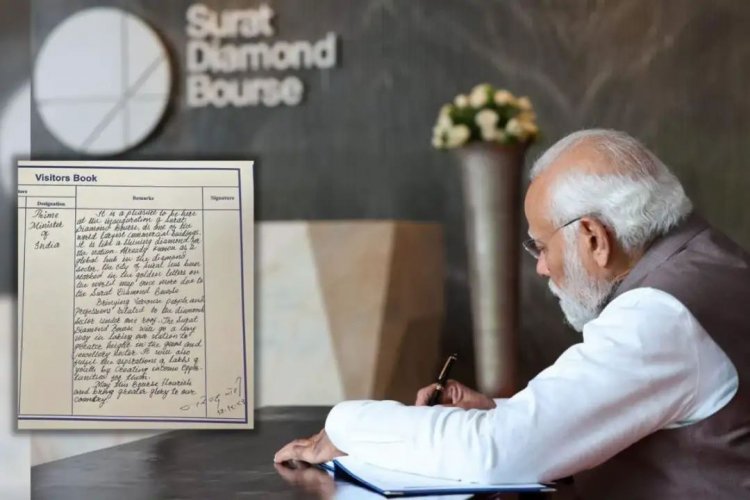 Surat
Diamond
Bourse
Visitors Book
Designation
Remarks
Signature
Prime
Minister
of
India
It is a pleasure to be here
at the inauguration of Surat
Diamond Bourse, as one of the
world largest commercial buildings.
It is like a shining diamond for
the nation. Already known as a
global hub in the diamond
sector, the city of Surat has been
in the golden letters on
the world map once more due to
the Surat Diamond Bourse
Bringing various people and
Professions related to the diamond
sector under one roof, The Surat
Diamond Bourse will go a long
way in taking our nation to
greater height in the gems and
jewellery sector. It will also
fulfil the aspirations of lakhs of
youth by creating
for them.
May this Bourse flourish
and bring greater glory to our
country.